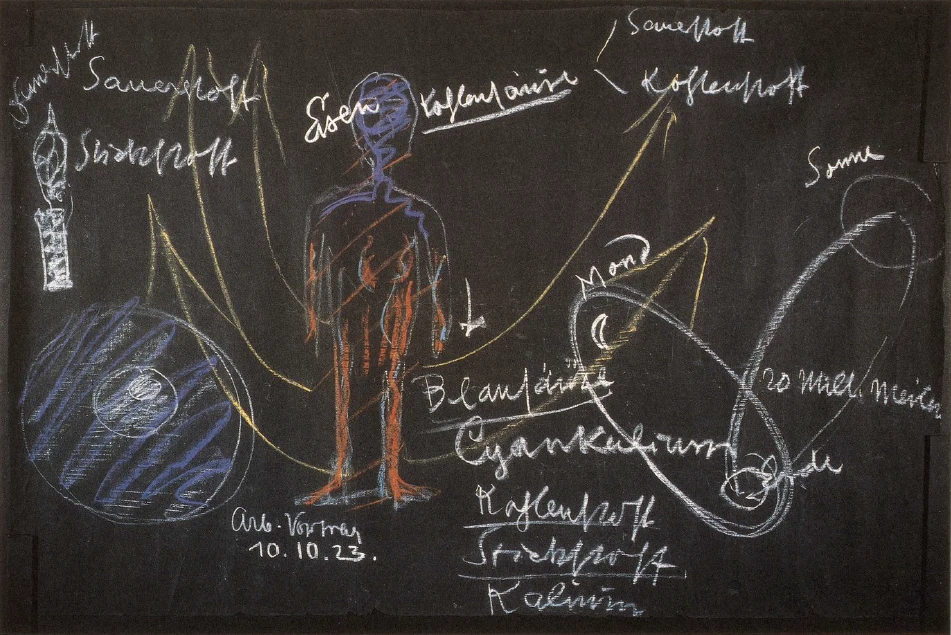 Sauerstoff
Sauerstoff
Kohlenstoff
Eisen
Kohlensäure
Stickstoff
Sonne
Mond
Blausäure
20 Mill. Meilen
Cyankalium
Erde
Kohlenstoff
Stickstoff
Kalium
Arb. Vortrag
10.10.23.